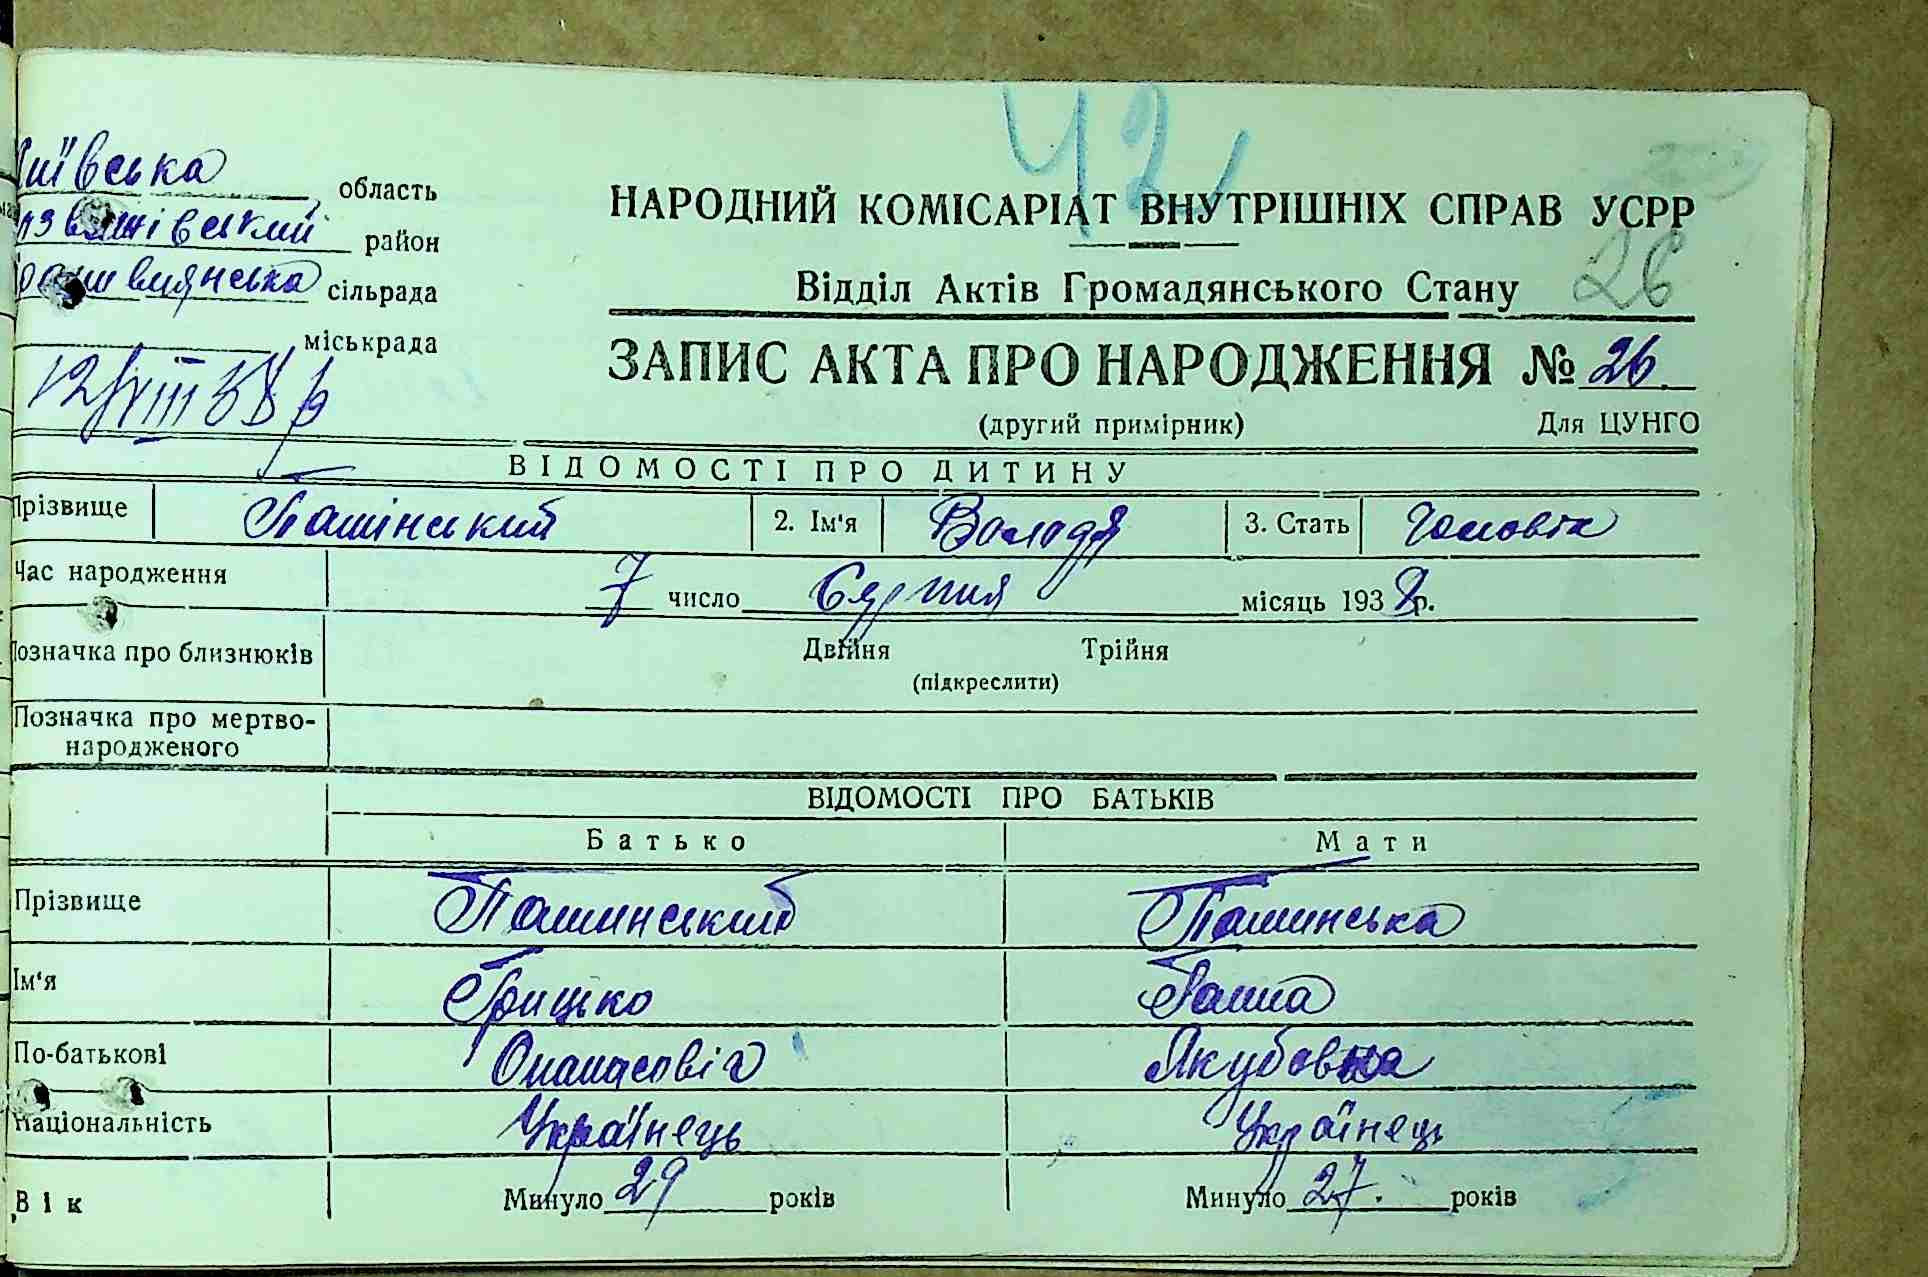 42
иївська область
НАРОДНИЙ КОМІСАРІАТ ВНУТРІШНІХ СПРАВ УСРР
район
26
Відділ Актів Громадянського Стану
сільрада
міськрада
ЗАПИС АКТА ПРО НАРОДЖЕННЯ № 26
12/VIII 38 р
(другий примірник) Для ЦУНГО
ВІДОМОСТІ ПРО ДИТИНУ
Прізвище Пашінський 2. Ім'я Володя 3. Стать Чоловік
Час народження 7 число Серпня місяць 1938 р.
Позначка про близнюків Двійня Трійня
(підкреслити)
Позначка про мертво-
народженого
ВІДОМОСТІ ПРО БАТЬКІВ
Батько Мати
Прізвище Пашинський Пашинська
Ім'я Грицько Ганна
По-батькові Опанасовіч Якубовна
Національність Українець Українець
Вік Минуло 29 років Минуло 27. років